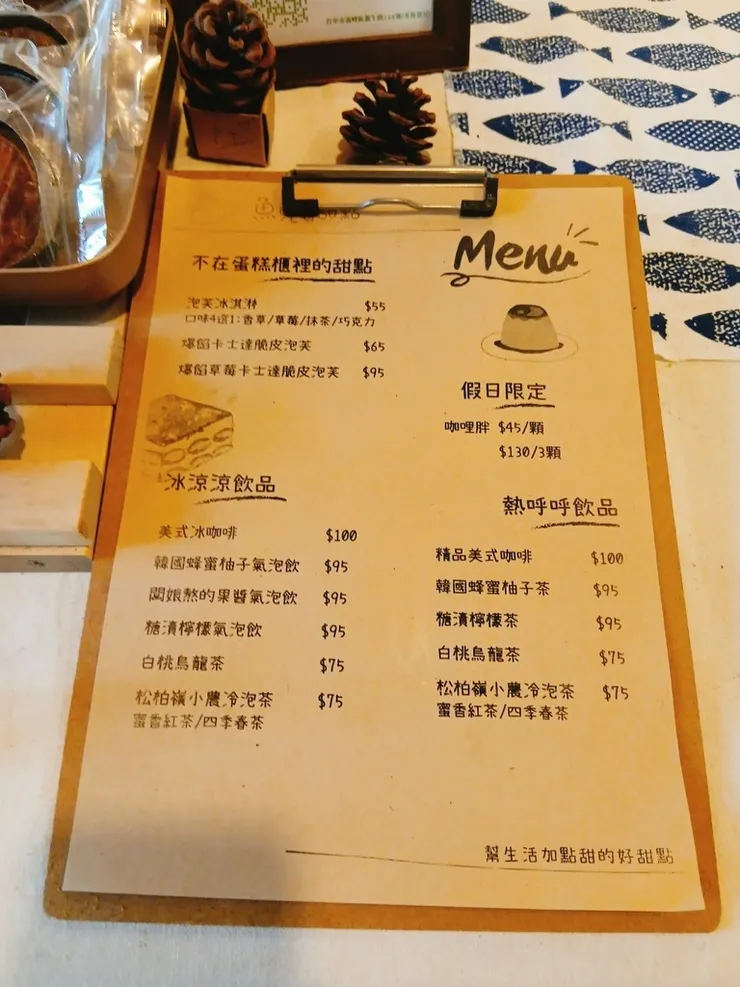 Menu
不在蛋糕櫃裡的甜點
泡芙冰淇淋 $55
口味4選1:香草/草莓/抹茶/巧克力
爆餡卡士達脆皮泡芙 $65
爆餡草莓卡士達脆皮泡芙 $95
假日限定
咖哩胖 $45/顆
$130/3顆
冰涼涼飲品
美式冰咖啡 $100
韓國蜂蜜柚子氣泡飲 $95
闆娘熬的果醬氣泡飲 $95
糖漬檸檬氣泡飲 $95
白桃烏龍茶 $75
松柏嶺小農冷泡茶 $75
蜜香紅茶/四季春茶
熱呼呼飲品
精品美式咖啡 $100
韓國蜂蜜柚子茶 $95
糖漬檸檬茶 $95
白桃烏龍茶 $75
松柏嶺小農冷泡茶 $75
蜜香紅茶/四季春茶
幫生活加點甜的好甜點